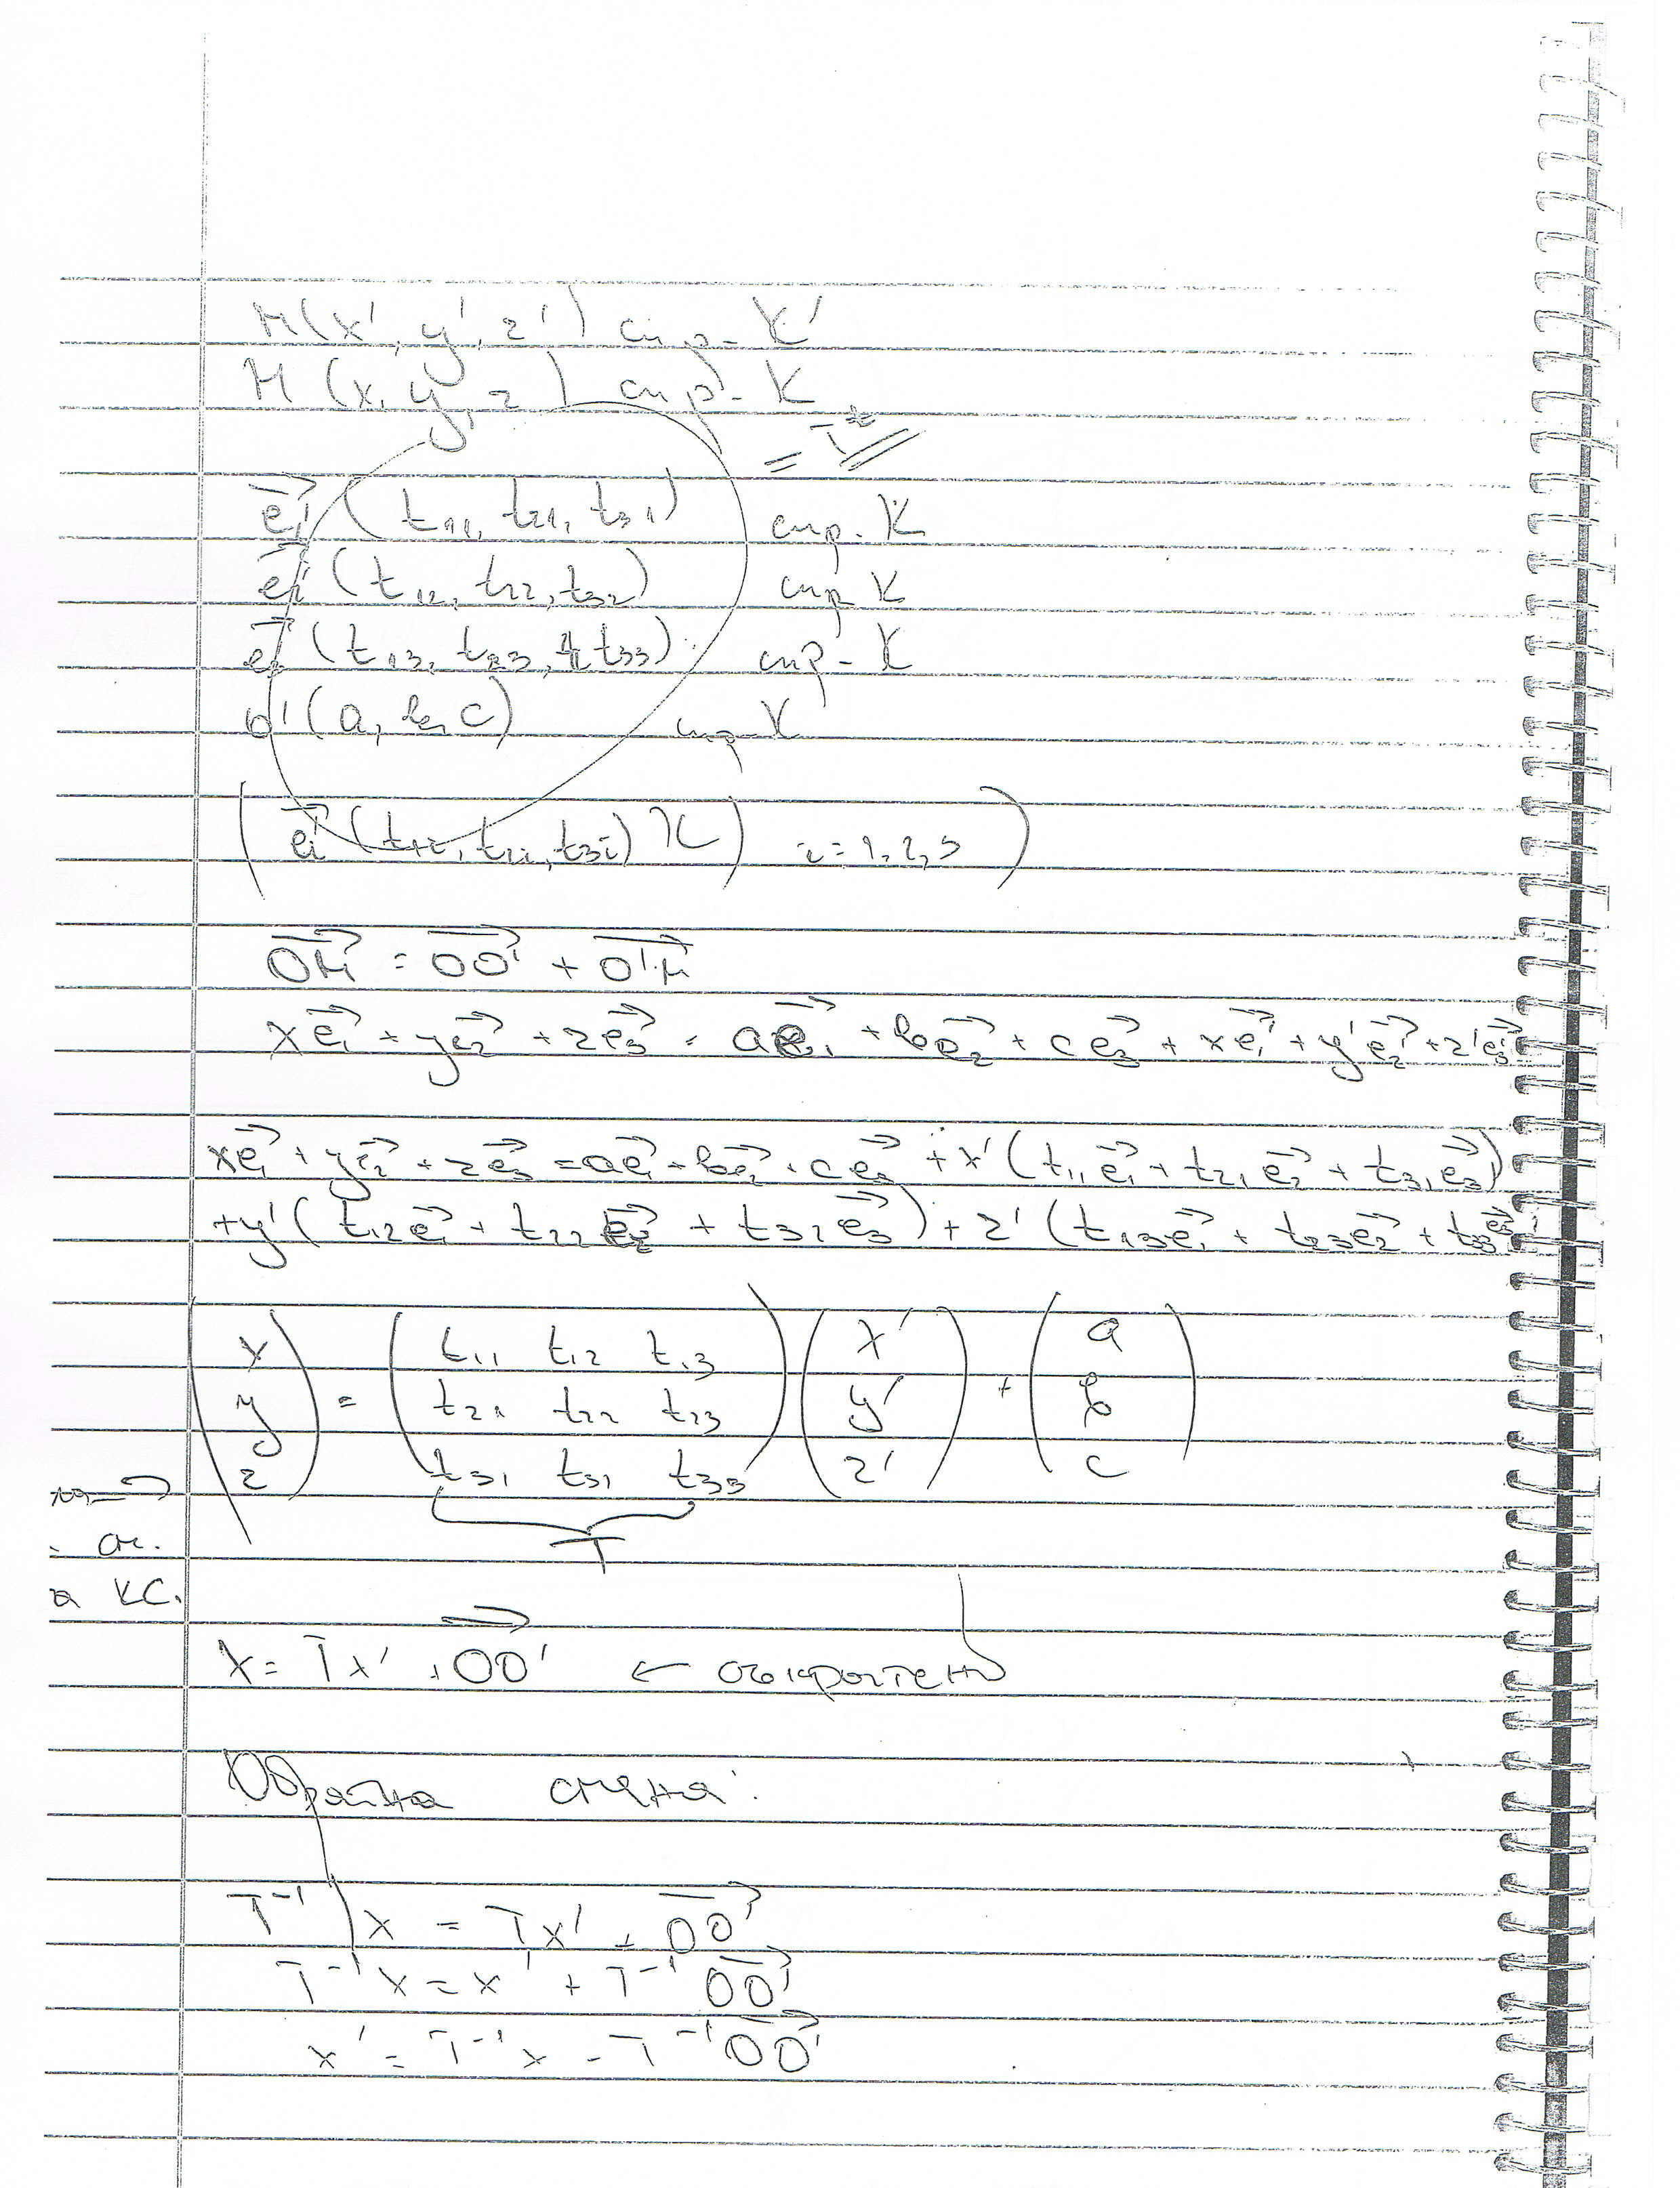 M(x', y', z') спр. K'
M (x, y, z) спр. K
= T
e₁'→ (t₁₁, t₂₁, t₃₁) спр. K
e₂'→ (t₁₂, t₂₂, t₃₂) спр K
e₃'→ (t₁₃, t₂₃, t₃₃) спр. K
O'(a, b, c) спр. K
(eᵢ'→ (t₁ᵢ, t₂ᵢ, t₃ᵢ) K) i = 1, 2, 3)
OM→ = OO'→ + O'M→
xe₁→ + ye₂→ + ze₃→ = ae₁→ + be₂→ + ce₃→ + xe₁'→ + y'e₂'→ + z'e₃'→
xe₁→ + ye₂→ + ze₃→ = ae₁→ + be₂→ + ce₃→ + x'(t₁₁e₁→ + t₂₁e₂→ + t₃₁e₃→)
+y'(t₁₂e₁→ + t₂₂e₂→ + t₃₂e₃→) + z'(t₁₃e₁→ + t₂₃e₂→ + t₃₃e₃→)
(x) = (t₁₁ t₁₂ t₁₃) (x') + (a)
(y) (t₂₁ t₂₂ t₂₃) (y') (b)
(z) (t₃₁ t₃₁ t₃₃) (z') (c)
T
а КС.
x = Tx' + OO'→ ← съкратено
Обратна смяна:
T⁻¹ | x = Tx' + OO'→
T⁻¹x = x' + T⁻¹ OO'→
x' = T⁻¹x - T⁻¹OO'→